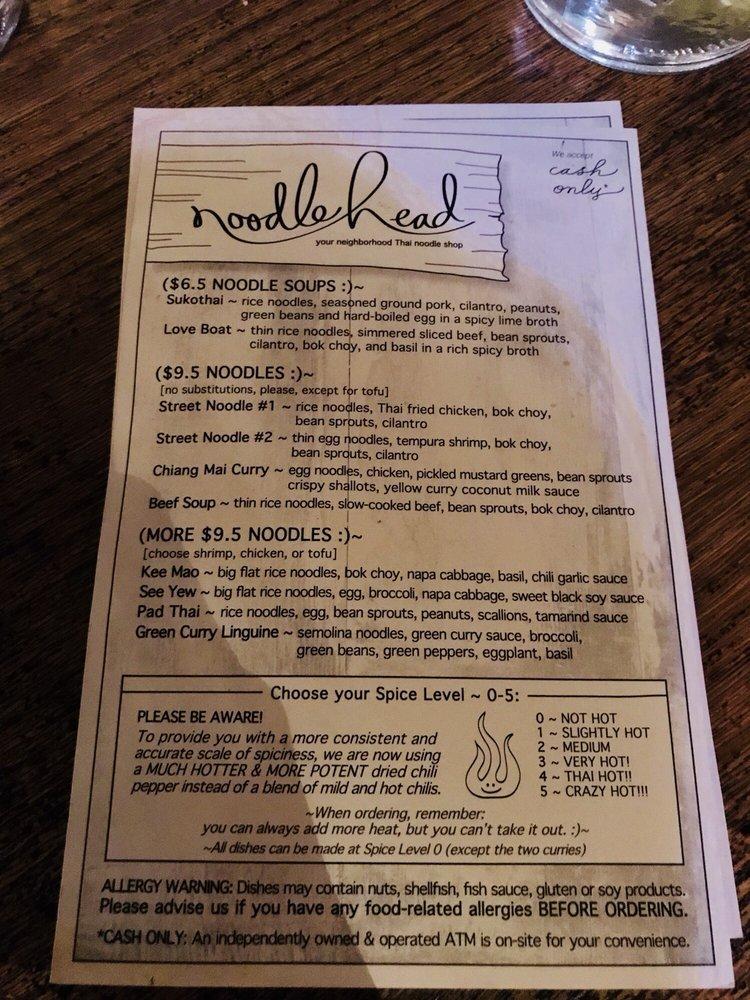 We accept
cash
only*
noodlehead
your neighborhood Thai noodle shop
($6.5 NOODLE SOUPS :)~
Sukothai ~ rice noodles, seasoned ground pork, cilantro, peanuts,
green beans and hard-boiled egg in a spicy lime broth
Love Boat ~ thin rice noodles, simmered sliced beef, bean sprouts,
cilantro, bok choy, and basil in a rich spicy broth
($9.5 NOODLES :)~
[no substitutions, please, except for tofu]
Street Noodle #1 ~ rice noodles, Thai fried chicken, bok choy,
bean sprouts, cilantro
Street Noodle #2 ~ thin egg noodles, tempura shrimp, bok choy,
bean sprouts, cilantro
Chiang Mai Curry ~ egg noodles, chicken, pickled mustard greens, bean sprouts
crispy shallots, yellow curry coconut milk sauce
Beef Soup ~ thin rice noodles, slow-cooked beef, bean sprouts, bok choy, cilantro
(MORE $9.5 NOODLES :)~
[choose shrimp, chicken, or tofu]
Kee Mao ~ big flat rice noodles, bok choy, napa cabbage, basil, chili garlic sauce
See Yew ~ big flat rice noodles, egg, broccoli, napa cabbage, sweet black soy sauce
Pad Thai ~ rice noodles, egg, bean sprouts, peanuts, scallions, tamarind sauce
Green Curry Linguine ~ semolina noodles, green curry sauce, broccoli,
green beans, green peppers, eggplant, basil
Choose your Spice Level ~ 0-5:
PLEASE BE AWARE!
To provide you with a more consistent and
accurate scale of spiciness, we are now using
a MUCH HOTTER & MORE POTENT dried chili
pepper instead of a blend of mild and hot chilis.
0 ~ NOT HOT
1 ~ SLIGHTLY HOT
2 ~ MEDIUM
3 ~ VERY HOT!
4 ~ THAI HOT!!
5 ~ CRAZY HOT!!!
~When ordering, remember:
you can always add more heat, but you can't take it out. :)~
~All dishes can be made at Spice Level 0 (except the two curries)
ALLERGY WARNING: Dishes may contain nuts, shellfish, fish sauce, gluten or soy products.
Please advise us if you have any food-related allergies BEFORE ORDERING.
*CASH ONLY: An independently owned & operated ATM is on-site for your convenience.